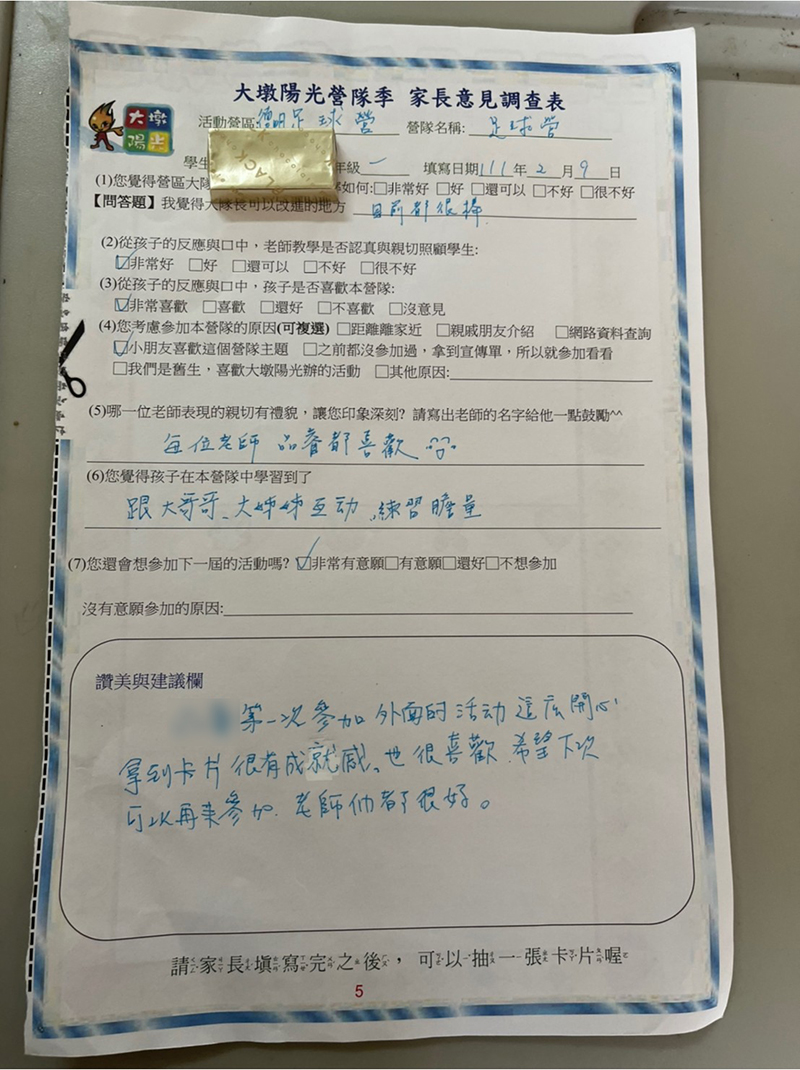 大墩陽光營隊季 家長意見調查表
大墩
陽光
活動營區:德明足球營 營隊名稱: 足球營
學生 年級 一 填寫日期 111 年 2 月 9 日
(1)您覺得營區大隊 如何:□非常好 □好 □還可以 □不好 □很不好
【問答題】我覺得大隊長可以改進的地方 目前都很棒
(2)從孩子的反應與口中，老師教學是否認真與親切照顧學生:
☑非常好 □好 □還可以 □不好 □很不好
(3)從孩子的反應與口中，孩子是否喜歡本營隊:
☑非常喜歡 □喜歡 □還好 □不喜歡 □沒意見
(4)您考慮參加本營隊的原因(可複選) □距離離家近 □親戚朋友介紹 □網路資料查詢
☑小朋友喜歡這個營隊主題 □之前都沒參加過，拿到宣傳單，所以就參加看看
□我們是舊生，喜歡大墩陽光辦的活動 □其他原因:
(5)哪一位老師表現的親切有禮貌，讓您印象深刻? 請寫出老師的名字給他一點鼓勵^^
每位老師 品睿都喜歡
(6)您覺得孩子在本營隊中學習到了
跟大哥哥、大姊姊互动、練習膽量
(7)您還會想參加下一屆的活動嗎? ☑非常有意願□有意願□還好□不想參加
沒有意願參加的原因:
讚美與建議欄
第一次參加外面的活动這広開心
拿到卡片很有成就感、也很喜歡、希望下次
可以再來參加、老師他都很好。
請家長填寫完之後，可以抽一張卡片喔
5